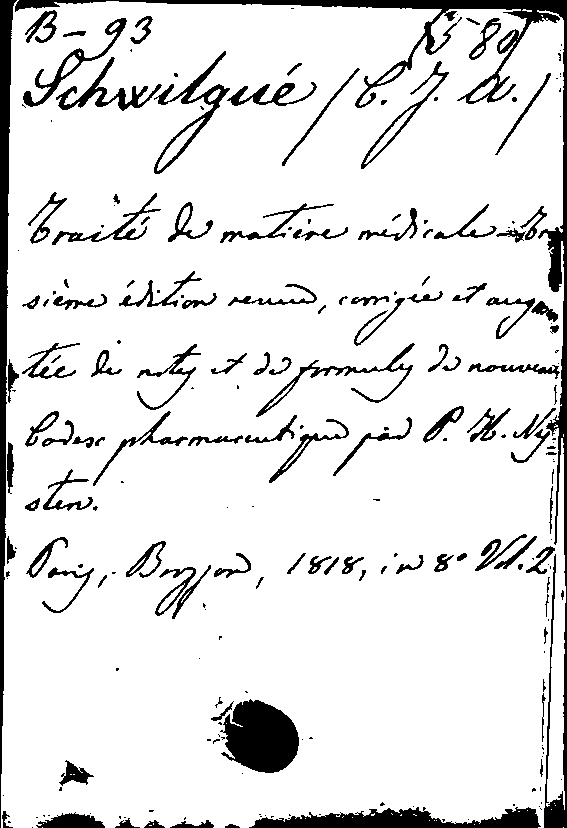 B – 93 580
Schwilgué (C. J. A.)
Traité de matière médicale – Troi
sième édition revue, corrigée et augmen
tée de notes et de formules de nouveau
Codex pharmaceutique par P. H. Ny
sten.
Paris, Brosson, 1818, in 8° Vol. 2